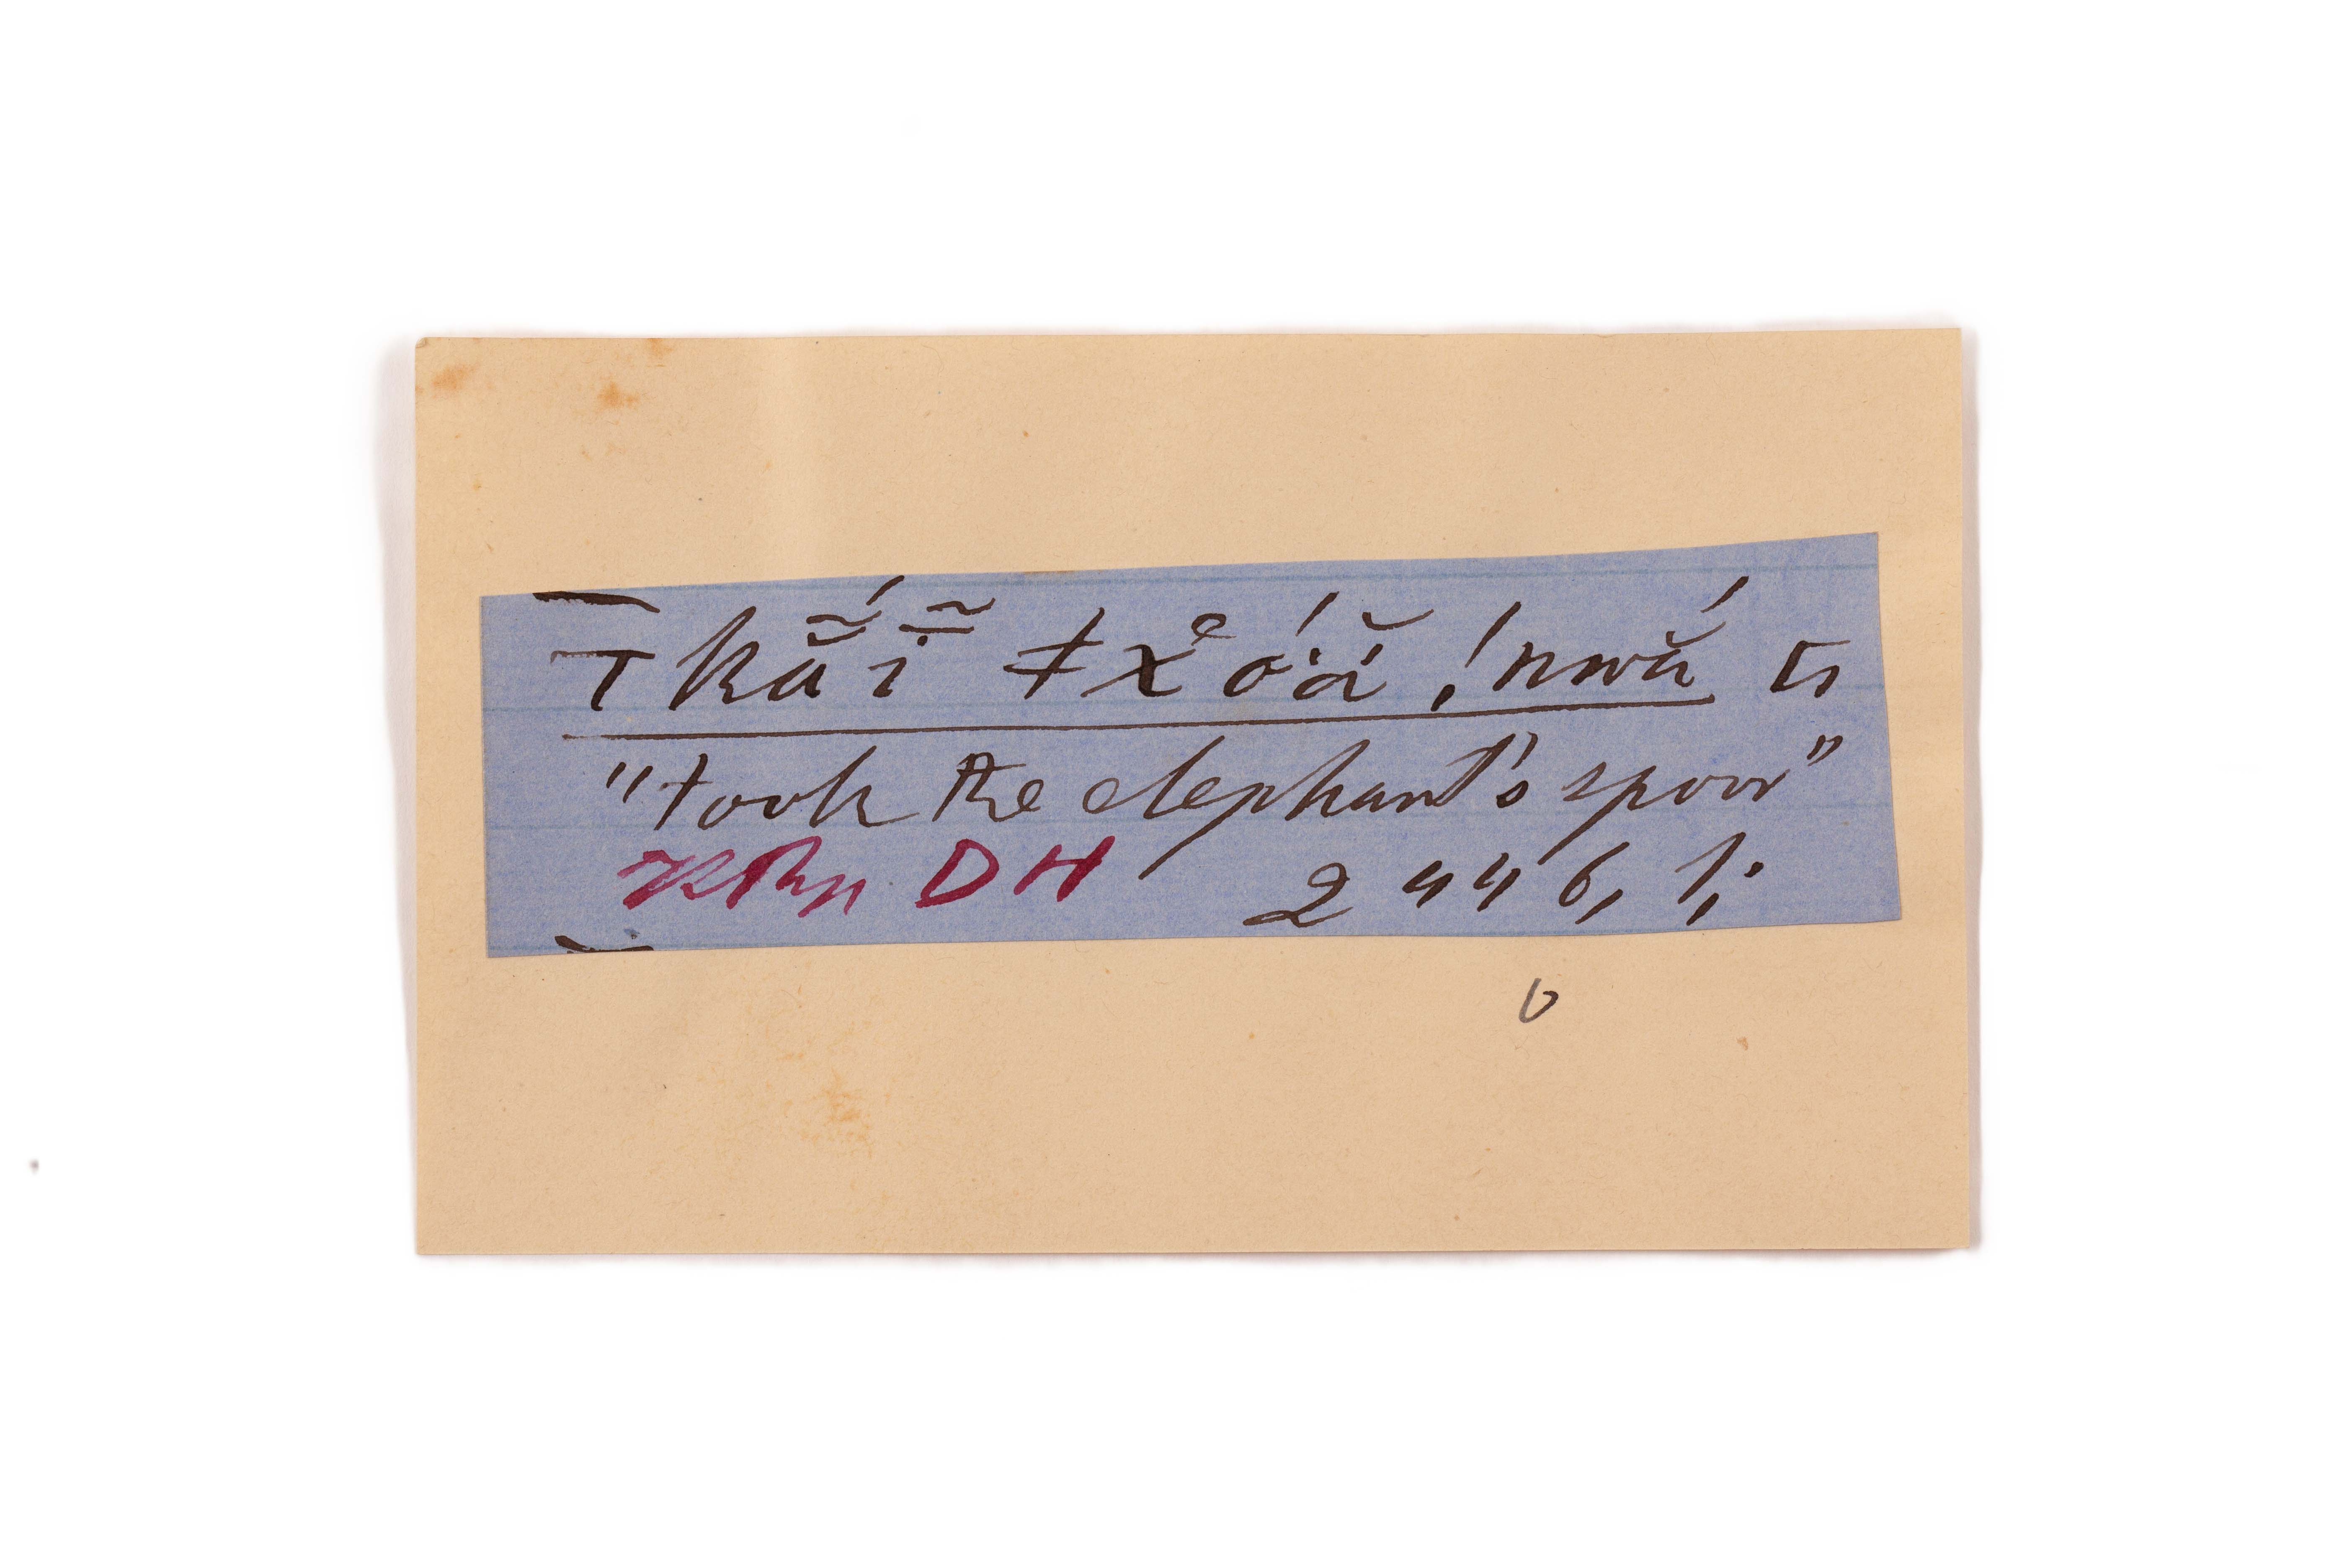 Tkā̆́ĩ ǂχo̊́ä̆ !nwắ ts
"took the elephant's spoor"
DH 2446,